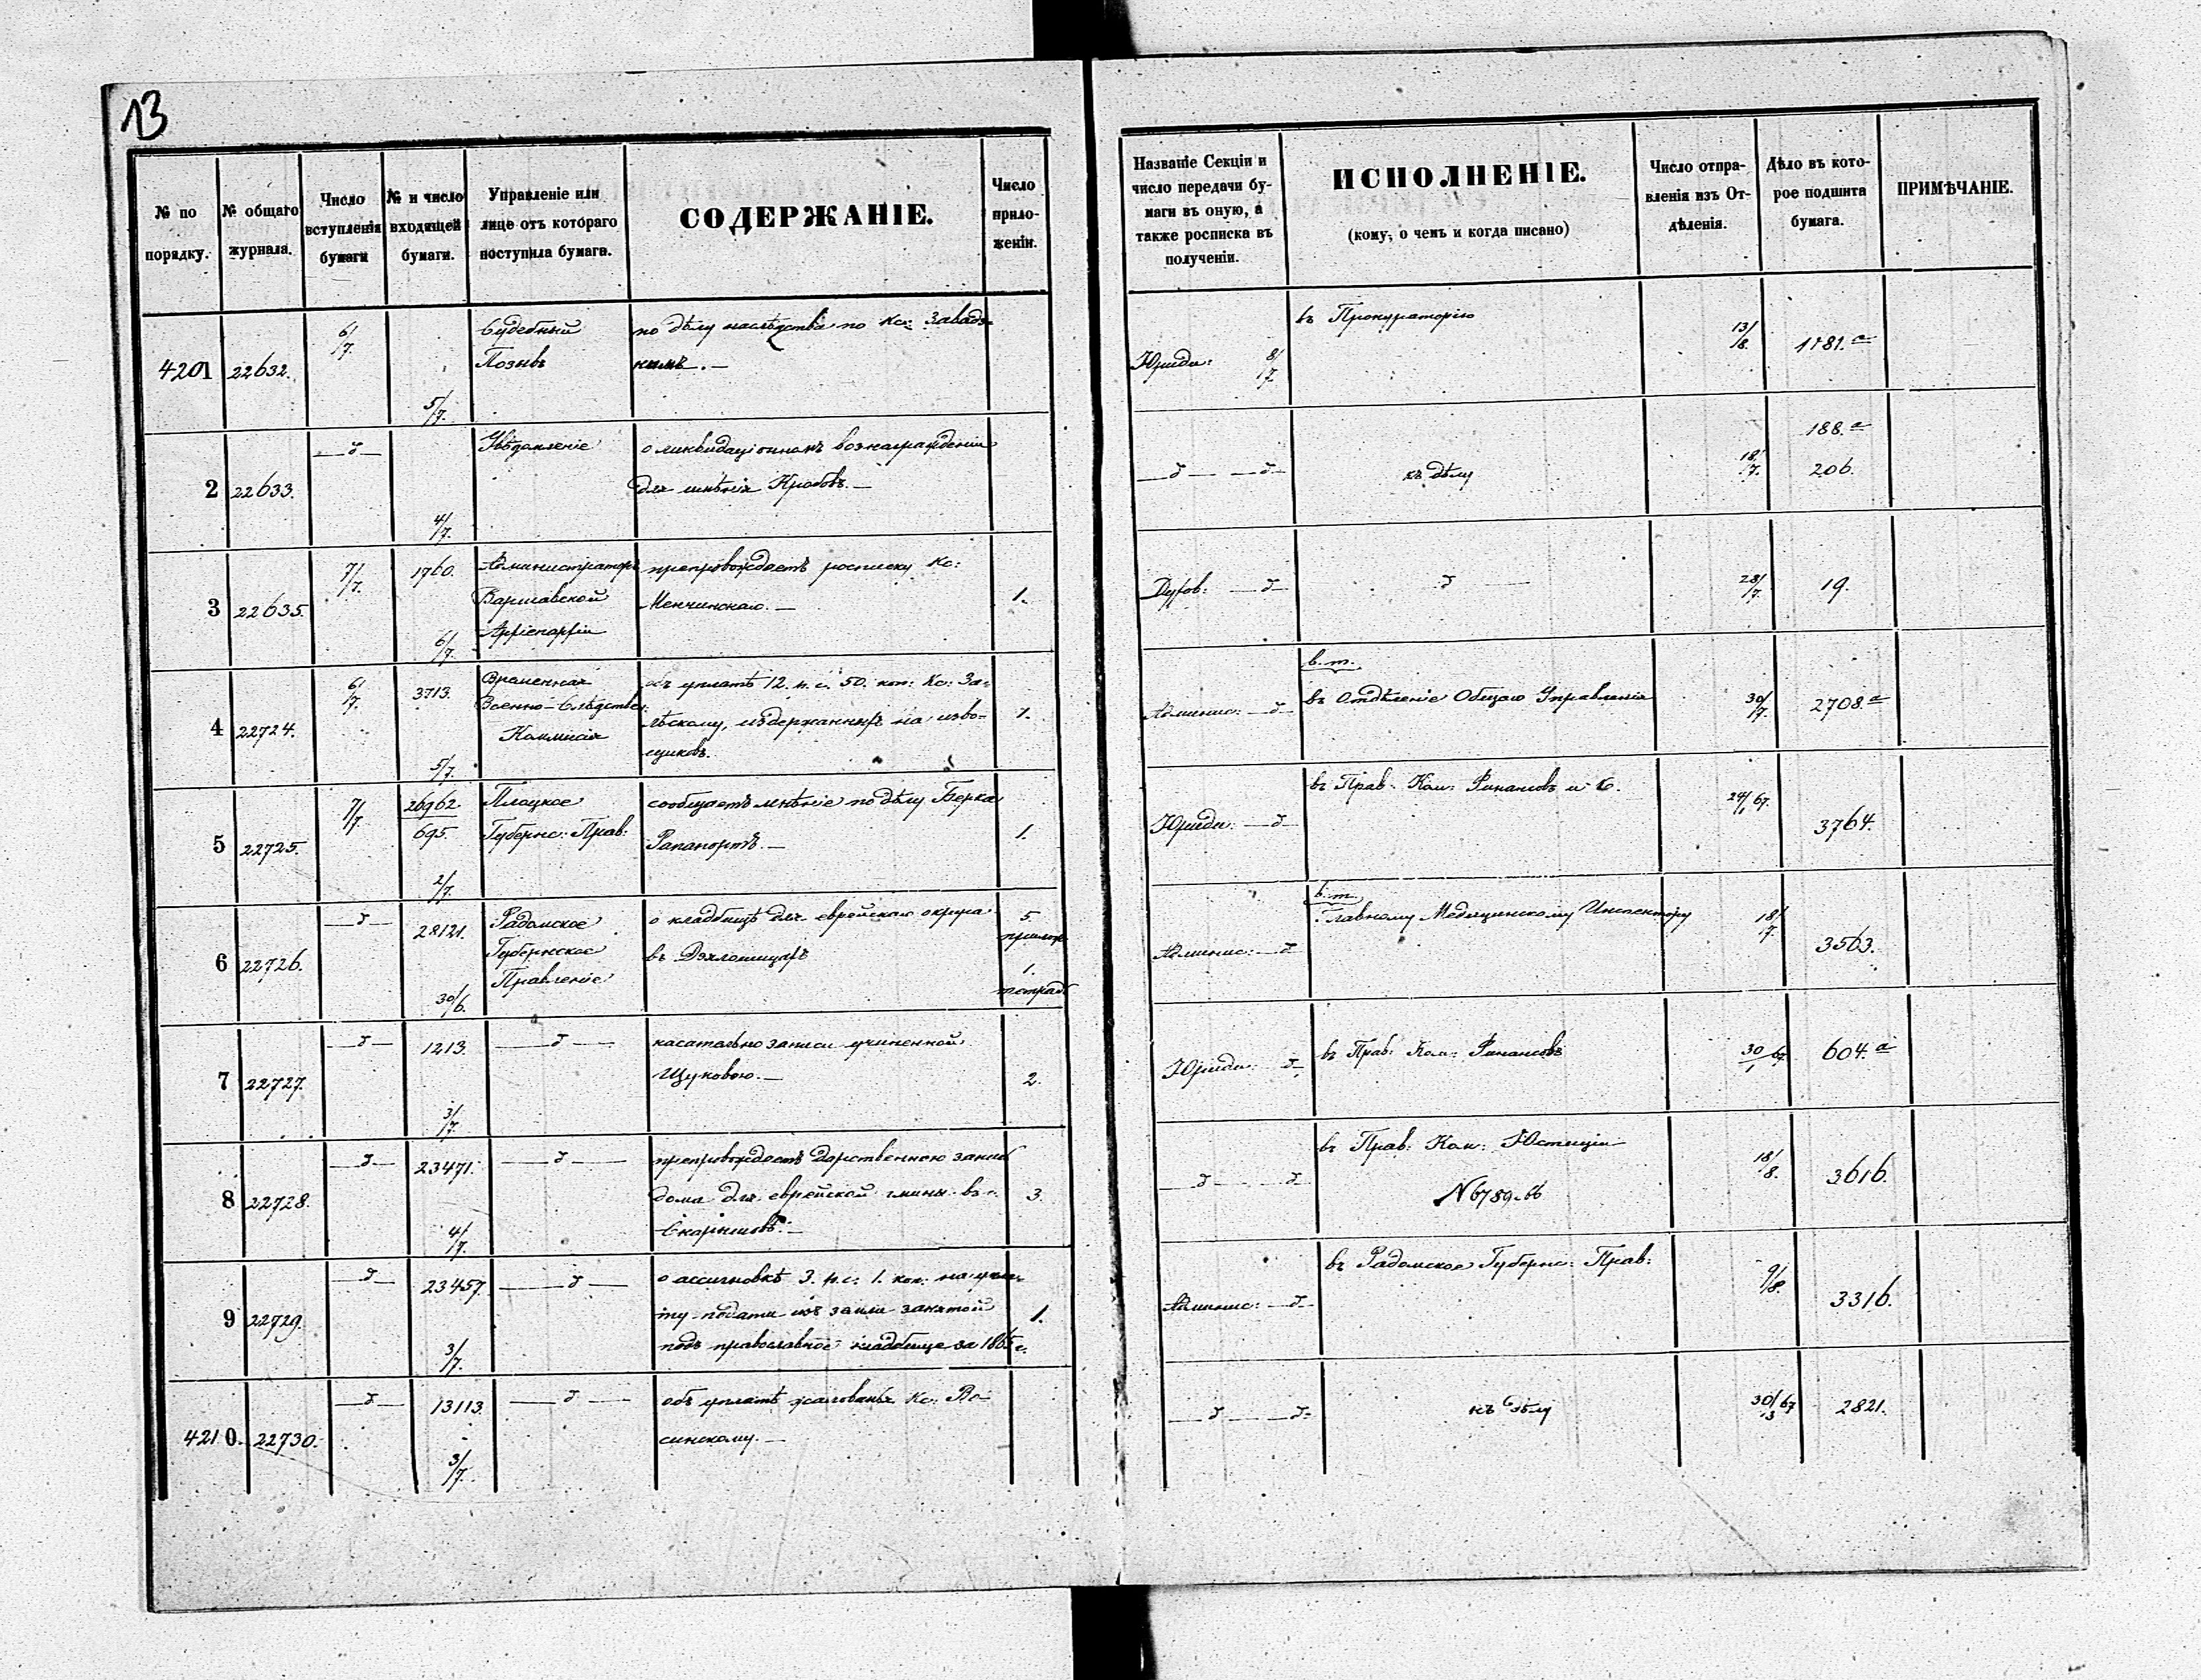 13
№ по порядку.
№ общаго журнала.
Число вступленія бумаги
№ и число входящей бумаги.
Управленіе или лице отъ котораго поступила бумага.
СОДЕРЖАНІЕ.
Число приложеніи.
Названіе Секціи и число передачи бумаги въ оную, а также росписка въ полученіи.
ИСПОЛНЕНІЕ.
(кому, о чемъ и когда писано)
Число отправленія изъ Отдѣленія.
Дѣло въ которое подшита бумага.
ПРИМѢЧАНІЕ.
4201 22632. 6/7. 5/7.
Судебный
Позывъ
по дѣлу наслѣдства по Кс: Завадз-
кимъ. —
Юриди: 8/7.
въ Прокураторію
13/8. 1181.a
2 22633. —д— 4/7.
Увѣдомленіе
о ликвидаціонномъ вознагражденіи
для имѣнія
—д— —д—
къ дѣлу
18/7.
188.a
206.
3 22635. 7/7. 1760. 6/7.
Администраторъ
Варшавской
Архіепархіи
препровождаетъ росписку Кс:
Менчинскаго. —
1.
Духов: —д—
—д—
28/7. 19.
4 22724. 6/7. 3713. 5/7.
Временная
Военно-Слѣдствен:
Коммисія
объ уплатѣ 12. р. с. 50. коп: Кс: За-
лѣскому, издержанныхъ на изво-
щиковъ.
1.
Админис: —д—
в. т.
въ Отдѣленіе Общаго Управленія
30/7. 2708.a
5 22725. 7/7. 26962. 695. 2/7.
Плоцкое
Губернс: Прав:
сообщаетъ мнѣніе по дѣлу Берка
Рапапортъ. —
1.
Юриди: —д—
въ Прав: Ком: Финансовъ и К.
67. 3764.
6 22726. —д— 28121. 30/6.
Радомское
Губернское
Правленіе
о кладбищѣ для еврейскаго округа
въ
5.
прилож
1.
тетрадь
Админис: —д—
в. т.
Главному Медицинскому Инспектору
18/7. 3563.
7 22727. —д— 1213. 3/7.
—д—
касательно записи учиненной
Щуковою. —
2.
Юриди: —д—
въ Прав: Ком: Финансовъ
30/1 67. 604.a
8 22728. —д— 23471. 4/7.
—д—
препровождаетъ дарственную запись
дома для еврейской гмины въ
3.
—д— —д—
въ Прав: Ком: Юстиціи
N 6789-66
18/8. 3616.
9 22729. —д— 23457. 3/7.
—д—
о ассигновкѣ 3. р. с. 1. коп: на упла-
ту подати изъ земли занятой
подъ православное кладбище за г.
1.
Админис: —д—
въ Радомское Губернс: Прав:
9/8. 3316.
4210. 22730. —д— 13113. 3/7.
—д—
объ уплатѣ жалованья Кс: Во-
синскому. —
—д— —д—
къ дѣлу
30/3 67 2821.